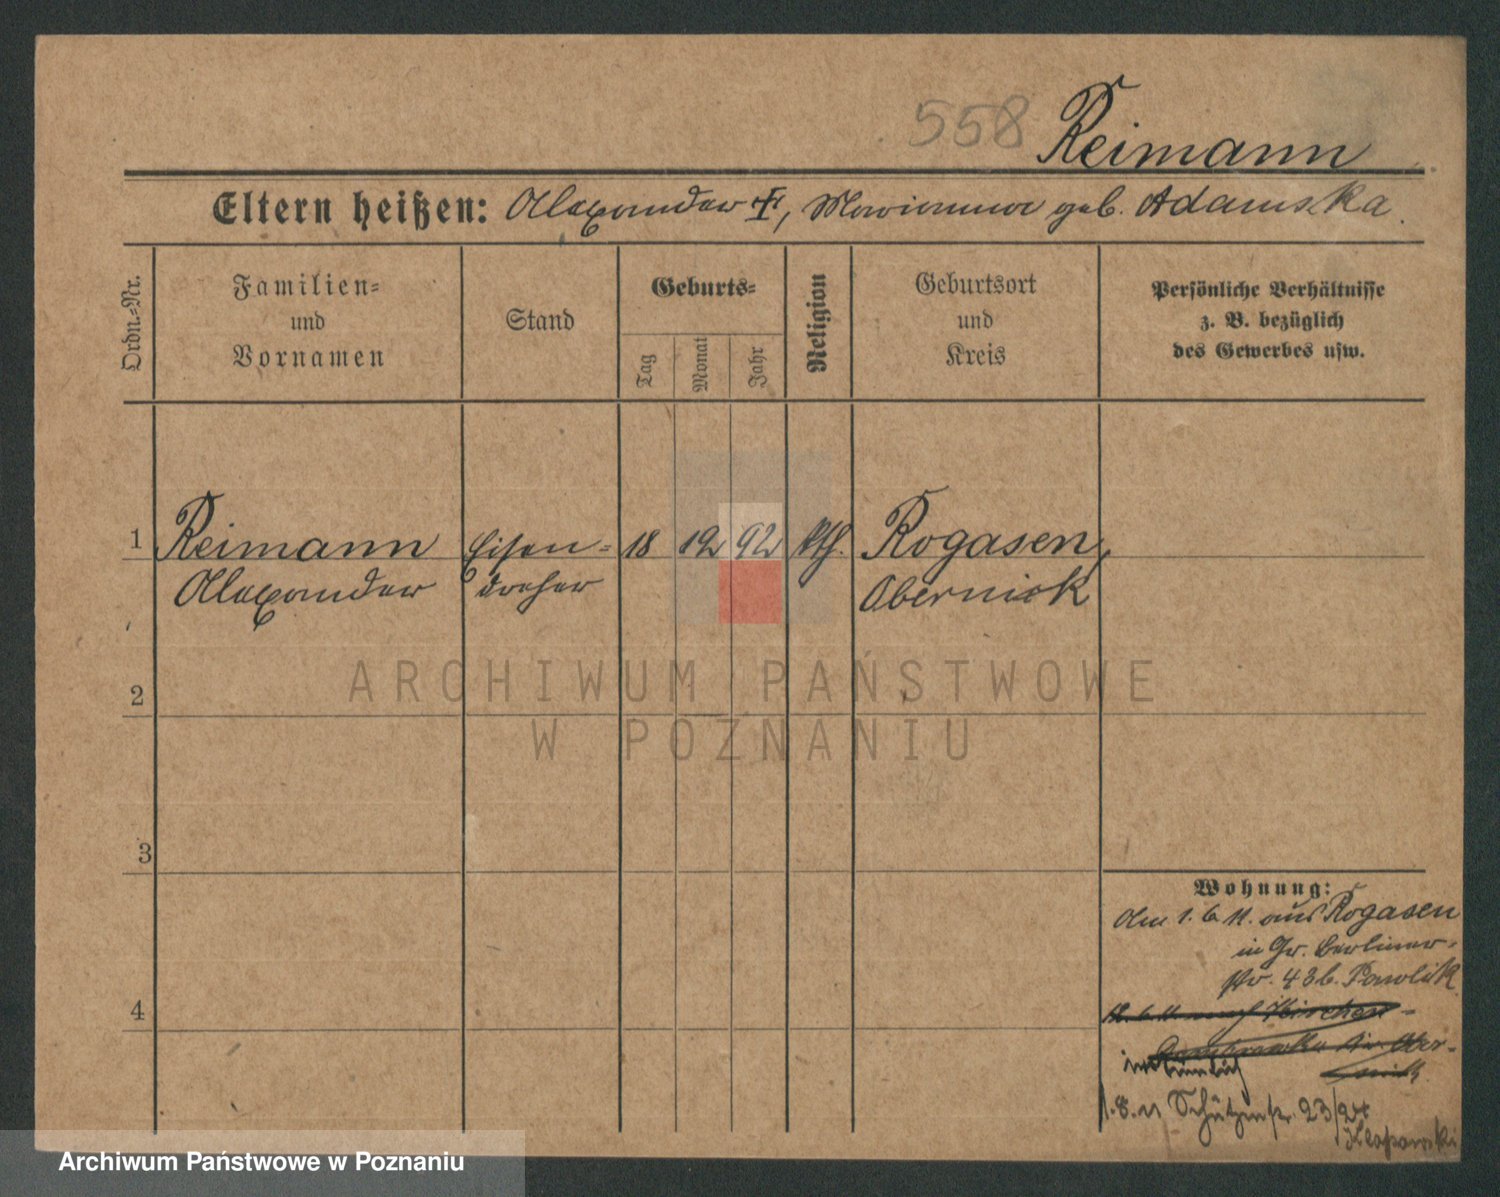 558 Reimann
Eltern heißen: Alexander †, Marianna geb. Adamska.
Ordn.-Nr.
Familien-
und
Vornamen
Stand
Geburts-
Tag
Monat
Jahr
Religion
Geburtsort
und
Kreis
Persönliche Verhältnisse
z. B. bezüglich
des Gewerbes usw.
1 Reimann Eisen- 18 12 92 kth. Rogasen,
Alexander dreher Obernick
2
3
4
Wohnung:
Am 1. 6. 11. aus Rogasen
in Gr. Berliner-
str. 43 b. Pawlik
12. 6. 11. nach
Ober-
nick
1. 8. 11 Schützenstr. 23/24
ARCHIWUM PAŃSTWOWE
W POZNANIU
Archiwum Państwowe w Poznaniu